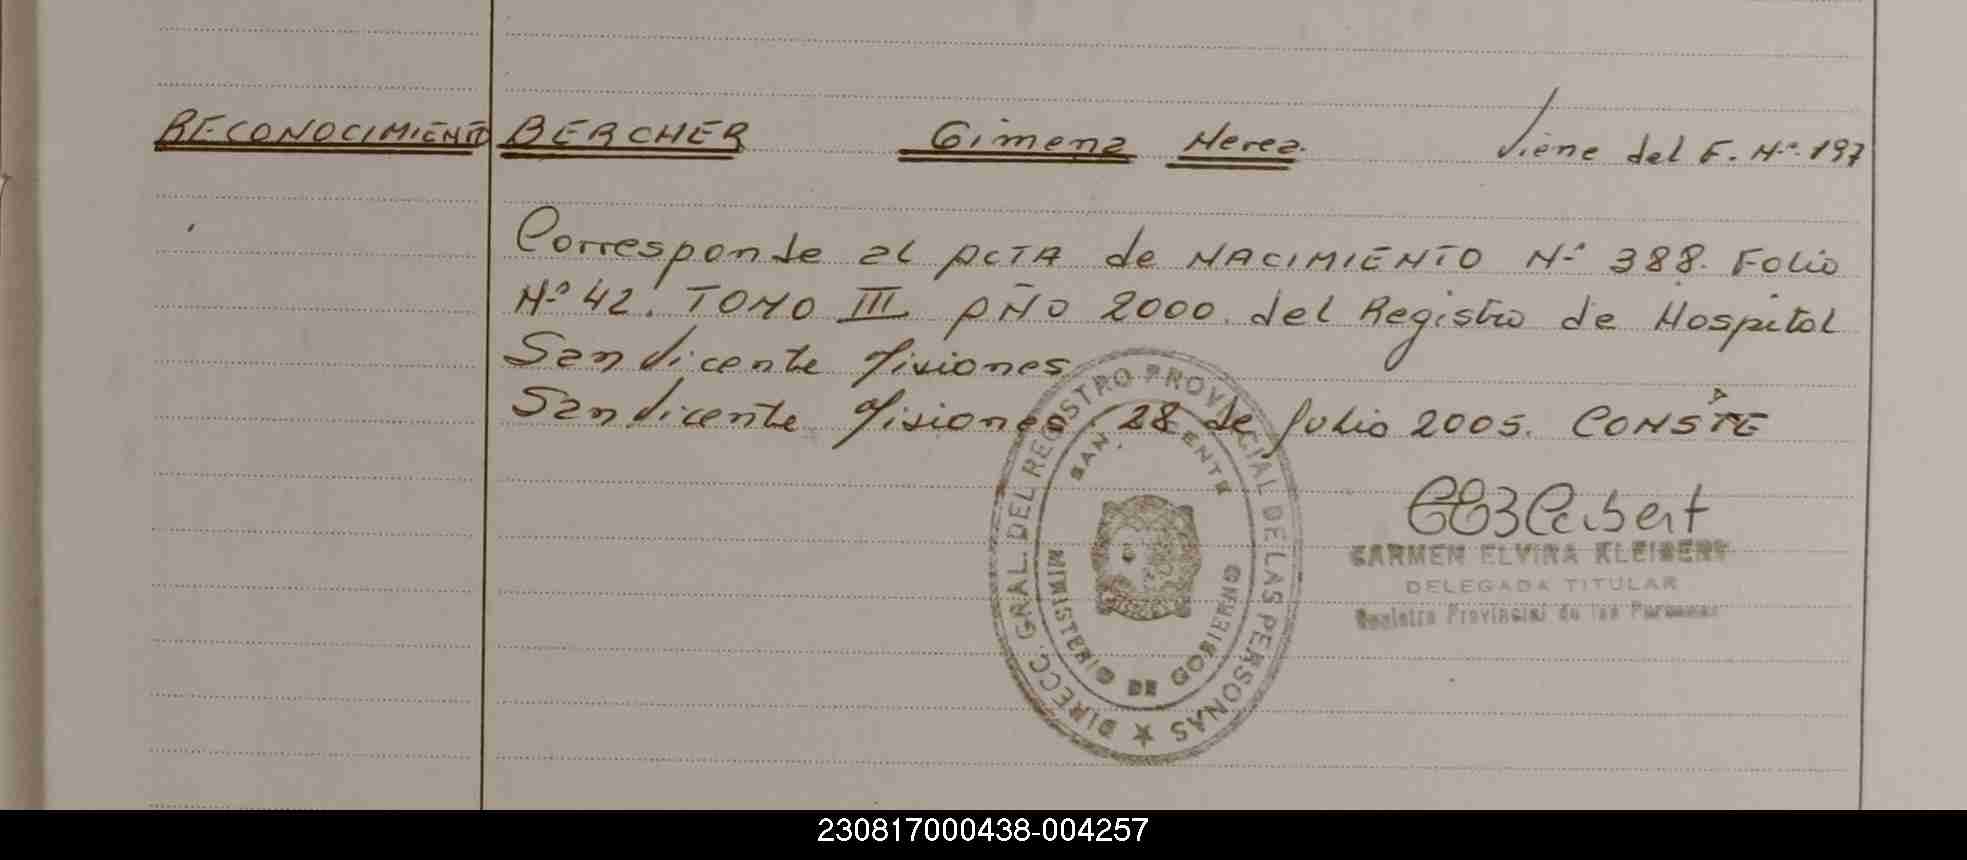 RECONOCIMIENTO BERCHER Gimena Nerea. Viene del F. Nº 197
Corresponde al ACTA de NACIMIENTO Nº 388. Folio
Nº 42. TOMO III AÑO 2000. del Registro de Hospital
San Vicente Misiones
San Vicente Misiones. 28 de Julio 2005. CONSTE
CARMEN ELVIRA KLEIBERT
DELEGADA TITULAR
Registro Provincial de las Personas
DIRECC. GRAL. DEL REGISTRO PROVINCIAL DE LAS PERSONAS
SAN
MINISTERIO DE GOBIERNO
230817000438-004257